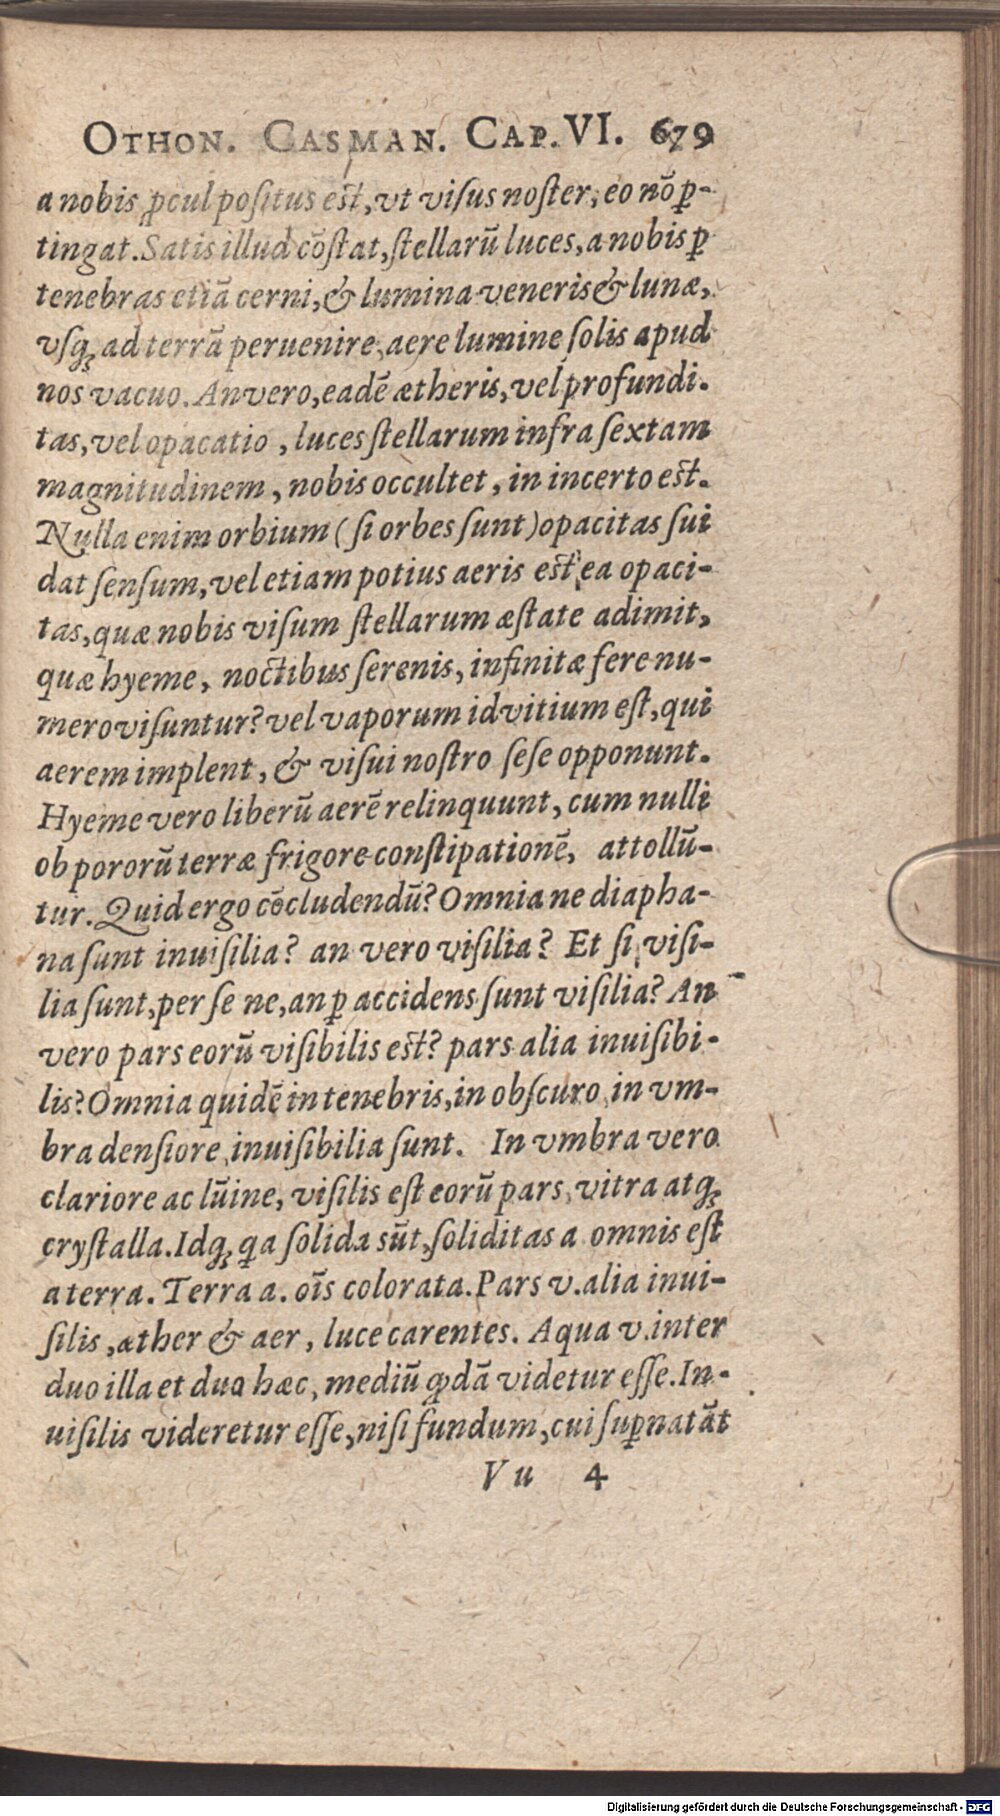 OTHON. CASMAN. CAP. VI. 679
a nobis ꝓcul poſitus eſt, vt viſus noſter, eo nō ꝑ-
tingat. Satis illud cōſtat, ſtellarū luces, a nobis ꝑ
tenebras etiā cerni, & lumina veneris & lunæ,
vſqꝫ ad terrā peruenire, aere lumine ſolis apud
nos vacuo. An vero, eadē ætheris, vel profundi-
tas, vel opacatio, luces ſtellarum infra ſextam
magnitudinem, nobis occultet, in incerto eſt.
Nulla enim orbium (ſi orbes ſunt) opacitas ſui
dat ſenſum, vel etiam potius aeris eſt ea opaci-
tas, quæ nobis viſum ſtellarum æſtate adimit,
quæ hyeme, noctibus ſerenis, infinitæ fere nu-
mero viſuntur? vel vaporum id vitium eſt, qui
aerem implent, & viſui noſtro ſeſe opponunt.
Hyeme vero liberū aerē relinquunt, cum nulli
ob pororū terræ frigore conſtipationē, attollū-
tur. Quid ergo cōcludendū? Omnia ne diapha-
na ſunt inuiſilia? an vero viſilia? Et ſi viſi-
lia ſunt, per ſe ne, an ꝑ accidens ſunt viſilia? An
vero pars eorū viſibilis eſt? pars alia inuiſibi-
lis? Omnia quidē in tenebris, in obſcuro, in vm-
bra denſiore inuiſibilia ſunt. In vmbra vero
clariore ac lūine, viſilis eſt eorū pars, vitra atqꝫ
cryſtalla. Idqꝫ qa ſolida sūt, ſoliditas a omnis eſt
a terra. Terra a. oīs colorata. Pars v. alia inui-
ſilis, æther & aer, luce carentes. Aqua v. inter
duo illa et duo hæc, mediū qdā videtur eſſe. In-
uiſilis videretur eſſe, niſi fundum, cui ſuꝑnatāt
V u 4
Digitalisierung gefördert durch die Deutsche Forschungsgemeinschaft - DFG